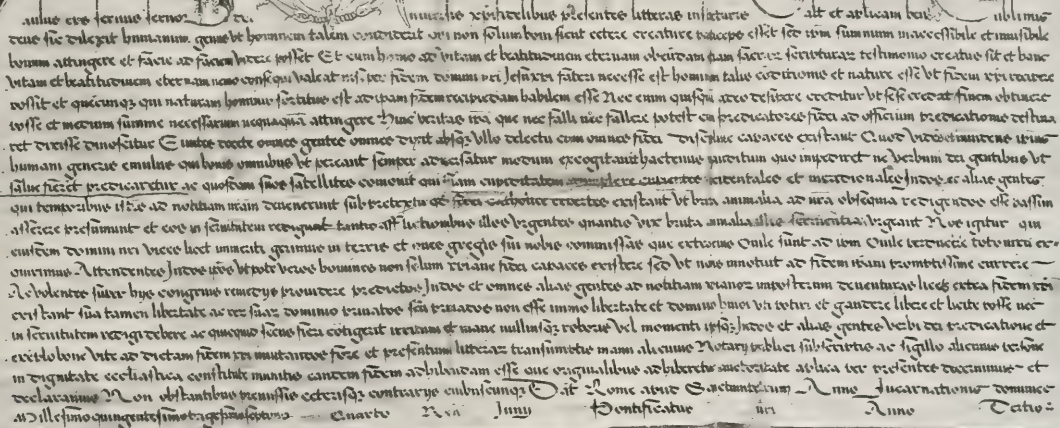 aulus eps seruus seruor dei. niuersis xpifidelibus presentes litteras inspecturis Salt et aplicam ben. ublimis
deus sic dilexit humanum genus vt hominem talem condiderit qui non solum boni sicut cetere creature particeps esset sed ipm summum inaccessibile et inuisibile
bonum attingere et facie ad faciem videre posset Et cum homo ad vitam et beatitudinem eternam obeundam etiam sacrar scripturar testimonio creatus sit et hanc
vitam et beatitudinem eternam nemo consequi valeat nisi per fidem domini nri Jesu xpi fateri necesse est hominem talis conditionis et nature esse vt fidem xpi recipere
possit et quecunqz qui naturam hominis sortitus est ad ipam fidem recipiendam habilem esse Nec enim quisqz adeo desipere creditur vt sese credat finem obtinere
posse et medium summe necessarium nequaquā attingere Hinc veritas ipa que nec falli nec fallere potest cum predicatores fidei ad officium predicationis destina
ret dixisse dinoscitur Euntes docete omnes gentes omnes dixit absqz vllo delectu cum omnes fidei discipline capaces existant Quod videns et inuidens ipius
humani generis emulus qui bonis omnibus vt pereant semper aduersatur modum excogitauit hactenus inauditum quo impediret ne verbum dei gentibus vt
salue fierent predicaretur ac quosdam suos satellites comouit qui suam cupiditatem adimplere cupientes occidentales et meridionales Indos et alias gentes
que temporibus istis ad notitiam nram deuenerunt sub pretextu qd fidei catholice expertes existant vt bruta animalia ad nra obsequia redigendos esse passim
asserere presumunt et eos in seruitutem redigunt tantis afflictionibus illos vrgentes quantis vix bruta animalia illis seruientia vrgeant Nos igitur qui
eiusdem domini nri vices licet immeriti gerimus in terris et oues gregis sui nobis commissas que extra eius Ouile sunt ad ipm Ouile toto nixu ex-
quirimus Attendentes Indos ipos vtpote veros homines non solum xpiane fidei capaces existere sed vt nobis innotuit ad fidem ipam promptissime currere
Ac volentes super hijs congruis remedijs prouidere predictos Indos et omnes alias gentes ad notitiam xpianor imposterum deuenturas licet extra fidem xpi
existant sua tamen libertate ac rer suar dominio priuatos seu priuandos non esse immo libertate et dominio hmoi vti potiri et gaudere libere et licite posse nec
in seruitutem redigi debere ac quicquid secus fieri cotigerit irritum et inane nulliusqz roboris vel momenti ipsosqz Indos et alias gentes verbi dei predicatione et
exemplo bone vite ad dictam fidem xpi inuitandos fore et presentium litterar transumptis manu alicuius Notarij publici subscriptis ac sigillo alicuius persone
in dignitate ecclesiastica constitute munitis eandem fidem adhibendam esse que originalibus adhiberetur auctoritate aplica per presentes decernimus et
declaramus Non obstantibus premissis ceterisqz contrarijs quibuscunqz Dat Rome apud Sanctumpetrum Anno Incarnationis dominice
Millesimo quingentesimo trigesimoseptimo Quarto Non Junij Pontificatus nri Anno Tertio